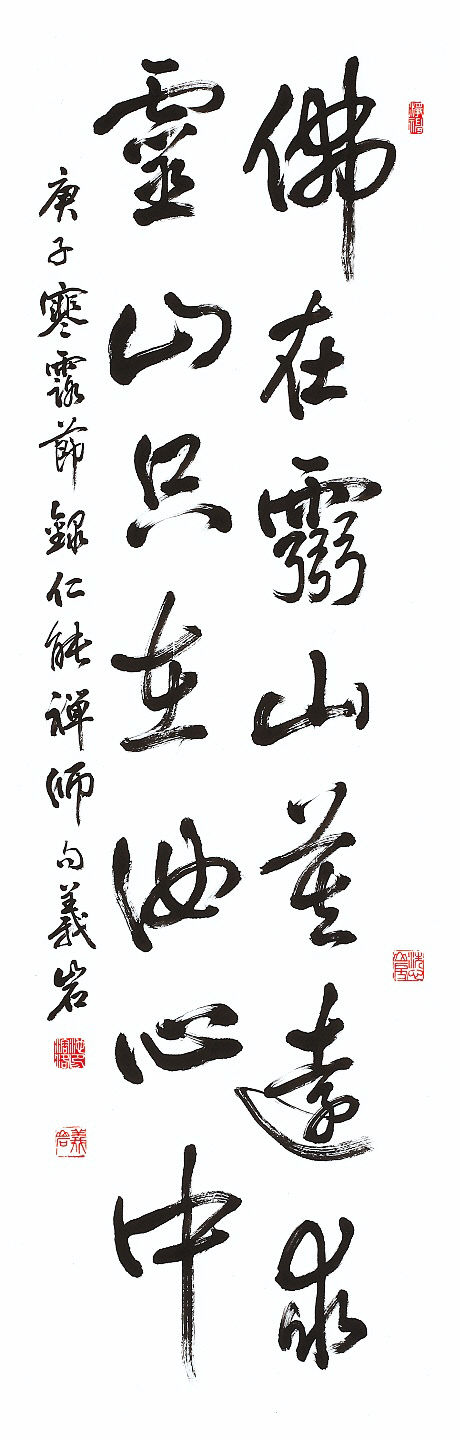 佛在靈山莫遠求
靈山只在汝心中
庚子寒露節錄仁能禪師句義岩
義岩